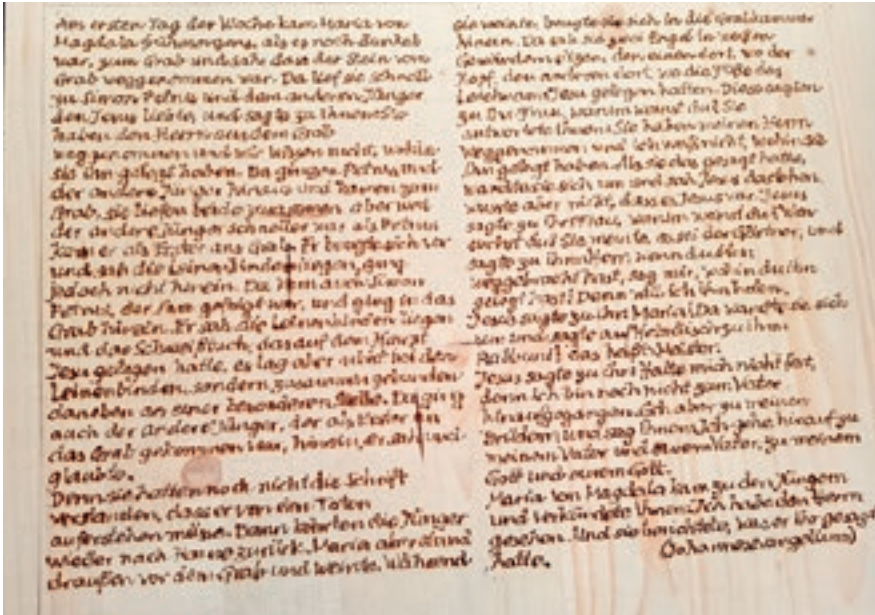 Am ersten Tag der Woche kam Maria von
Magdala frühmorgens, als es noch dunkel
war, zum Grab und sah dass der Stein vom
Grab weggenommen war. Da lief sie schnell
zu Simon Petrus und dem anderen Jünger
den Jesus liebte, und sagte zu ihnen: Sie
haben den Herrn aus dem Grab
weggenommen und wir wissen nicht, wohin
sie ihn gelegt haben. Da gingen Petrus und
der andere Jünger hinaus und kamen zum
Grab, sie liefen beide zusammen aber weil
der andere Jünger schneller war als Petrus
kam er als Erster ans Grab. Er beugte sich vor
und sah die Leinenbinden liegen, ging
jedoch nicht hinein. Da kam auch Simon
Petrus, der ihm gefolgt war, und ging in das
Grab hinein. Er sah die Leinenbinden liegen
und das Schweißtuch, das auf dem Haupt
Jesu gelegen hatte, es lag aber nicht bei den
Leinenbinden, sondern zusammengebunden
daneben an einer besonderen Stelle. Da ging
auch der andere Jünger, der als Erster an
das Grab gekommen war, hinein, er sah und
glaubte.
Denn sie hatten noch nicht die Schrift
verstanden, dass er von den Toten
auferstehen müsse. Dann kehrten die Jünger
wieder nach Hause zurück. Maria aber stand
draußen vor dem Grab und weinte. Während
sie weinte, beugte sie sich in die Grabkammer
hinein. Da sah sie zwei Engel in weißen
Gewändern sitzen, den einen dort, wo der
Kopf, den anderen dort, wo die Füße des
Leichnams Jesu gelegen hatten. Diese sagten
zu ihr: Frau, warum weinst du? Sie
antwortete ihnen: Sie haben meinen Herrn
weggenommen und ich weiß nicht, wohin sie
ihn gelegt haben. Als sie das gesagt hatte,
wandte sie sich um und sah Jesus dastehen
wusste aber nicht, dass es Jesus war. Jesus
sagte zu ihr: Frau, warum weinst du? Wen
suchst du? Sie meinte, es sei der Gärtner, und
sagte zu ihm: Herr, wenn du ihn
weggebracht hast, sag mir, wohin du ihn
gelegt hast! Dann will ich ihn holen.
Jesus sagte zu ihr: Maria! Da wandte sie sich
um und sagte auf Hebräisch zu ihm:
Rabbuni! das heißt Meister.
Jesus sagte zu ihr: Halte mich nicht fest,
denn ich bin noch nicht zum Vater
hinaufgegangen. Geh aber zu meinen
Brüdern und sag ihnen: Ich gehe hinauf zu
meinem Vater und eurem Vater, zu meinem
Gott und eurem Gott.
Maria von Magdala kam zu den Jüngern
und verkündete ihnen: Ich habe den Herrn
gesehen. Und sie berichtete, was er ihr gesagt
hatte. (Johannesevangelium)